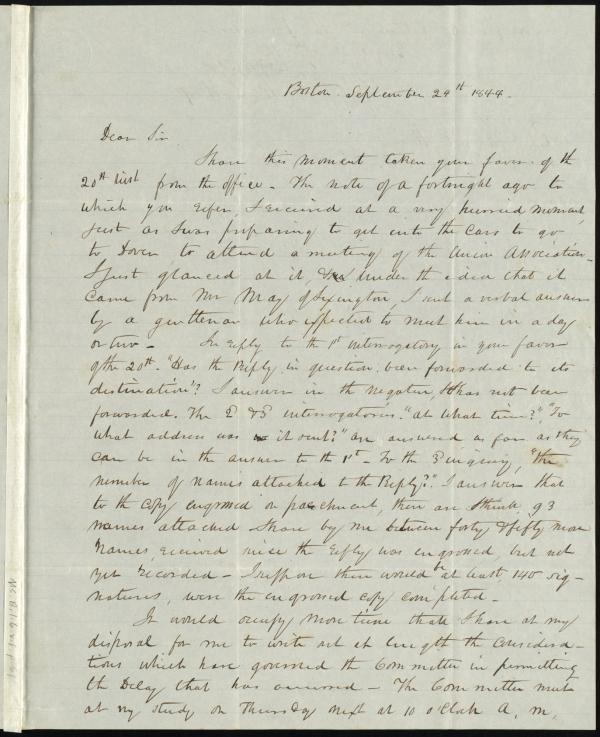 Boston September 24th 1844.
Dear Sir
I have this moment taken your favor of the
20th inst from the office - The note of a fortnight ago to
which you refer, I received at a very hurried moment,
just as I was preparing to get into the Cars to go
to Dover to attend a meeting of the Union Association -
I just glanced at it, & under the idea that it
came from Mr May of Lexington, I sent a verbal answer
by a gentleman who expected to meet him in a day
or two - In reply to the 1st interrogatory in your favor
of the 20th - "Has the Reply in question been forwarded to its
destination"? I answer in the negative, It has not been
forwarded. The 2 & 3 interrogatories. "At what time?" "To
what address was it sent?" are answered as far as they
can be in the answer to the 1st - To the inquiry, "the
number of names attached to the Reply?" I answer that
to the copy engrossed on parchment, there are I think 93
names attached I have by me between forty & fifty more
names, received since the Reply was engrossed, but not
yet recorded - I suppose there would be at least 140 sig-
natures, were the engrossed copy completed -
It would occupy more time than I have at my
disposal for me to write out at length the considera-
tions which have governed the Committee in permitting
the Delay that has occurred - The Committee meets
at my study on Thursday next at 10 o'Clock A. M.